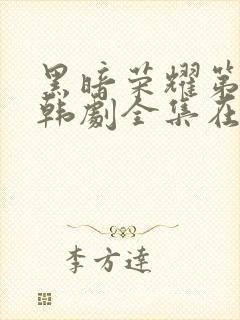 黑暗荣耀第
韩劇全集在
李方達